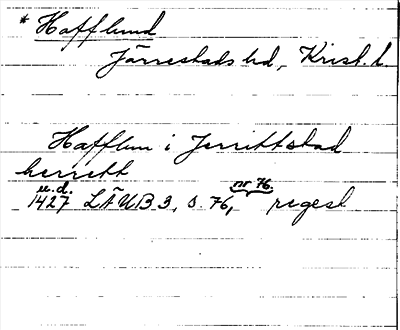 * Hafflund
Järrestads hd, Krist. l.
Hafflun i Jerrittstad
herrett
u.d. nr 76.
1427 LÄUB 3, s. 76, regest